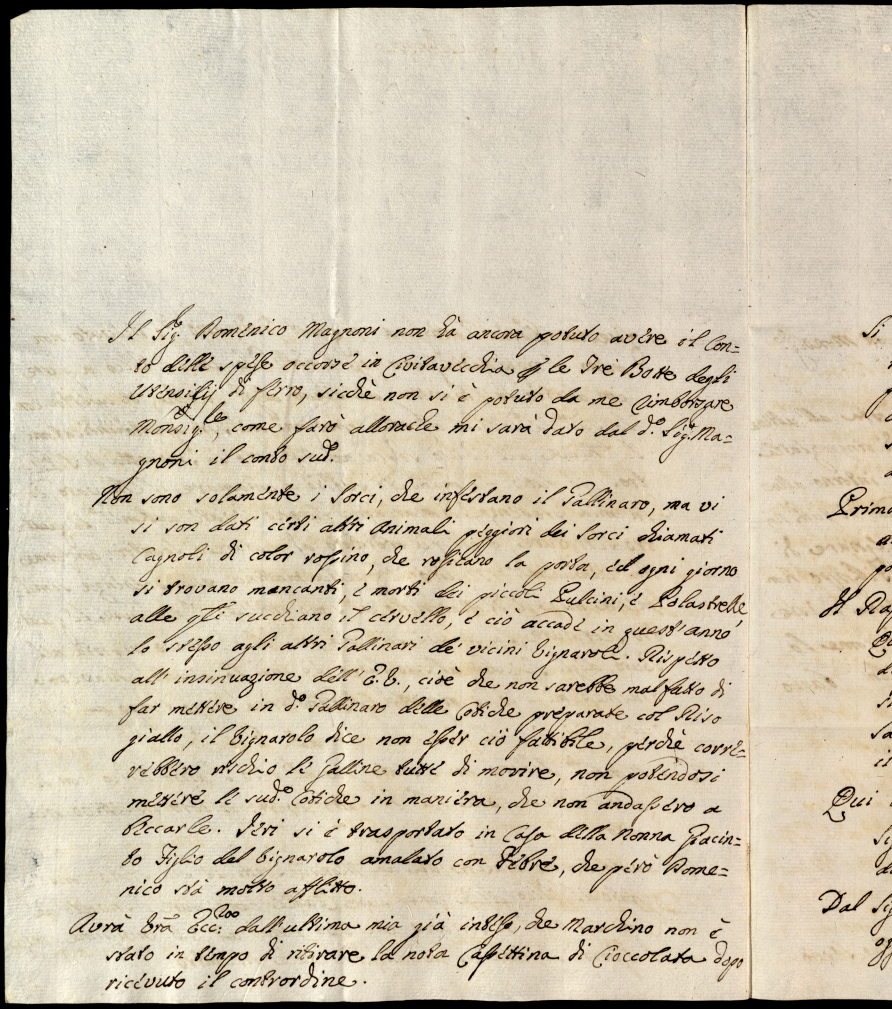 Il Sig. Domenico Magnoni non hà ancora potuto avere il Con=
to delle spese occorse in Civitavecchia p le Tre Botte degli
Utensilij di ferro, sicchè non si è potuto da me rimborsare
Monsig.re, come farò alloraché mi sarà dato dal d.o Sig. Ma=
gnoni il conto sud.o
Non sono solamente i Sorci, che infestano il Gallinaro, ma vi
si son dati certi altri Animali peggiori dei Sorci chiamati
Cagnoli di color rossino, che rosicano la porta, ed ogni giorno
si trovano mancanti, e morti dei piccoli Pulcini, e Polastrelle
alle qli succhiano il cervello, e ciò accade in quest'anno
lo stesso agli altri Gallinari de' vicini Vignaroli. Rispetto
all'insinuazione dell'E.V., cioè che non sarebbe mal fatto di
far mettere in d.o Gallinaro delle Cotiche preparate col Riso
giallo, il Vignarolo dice non esser ciò fattibile, perchè corre=
rebbero rischio le Galline tutte di morire, non potendosi
mettere le sud.e Cotiche in maniera, che non andassero a
Beccarle. Jeri si è trasportato in Casa della Nonna Giacin=
to Figlio del Vignarolo amalato con Febre, che però Dome=
nico stà molto afflitto.
Avrà Vra Ecc.za dall'ultima mia già inteso, che Marchino non è
stato in tempo di ritirare la nota Cassettina di Cioccolata dopo
ricevuto il controrordine.
Si
Prima
po
Il Rap
Qui
Dal Sig